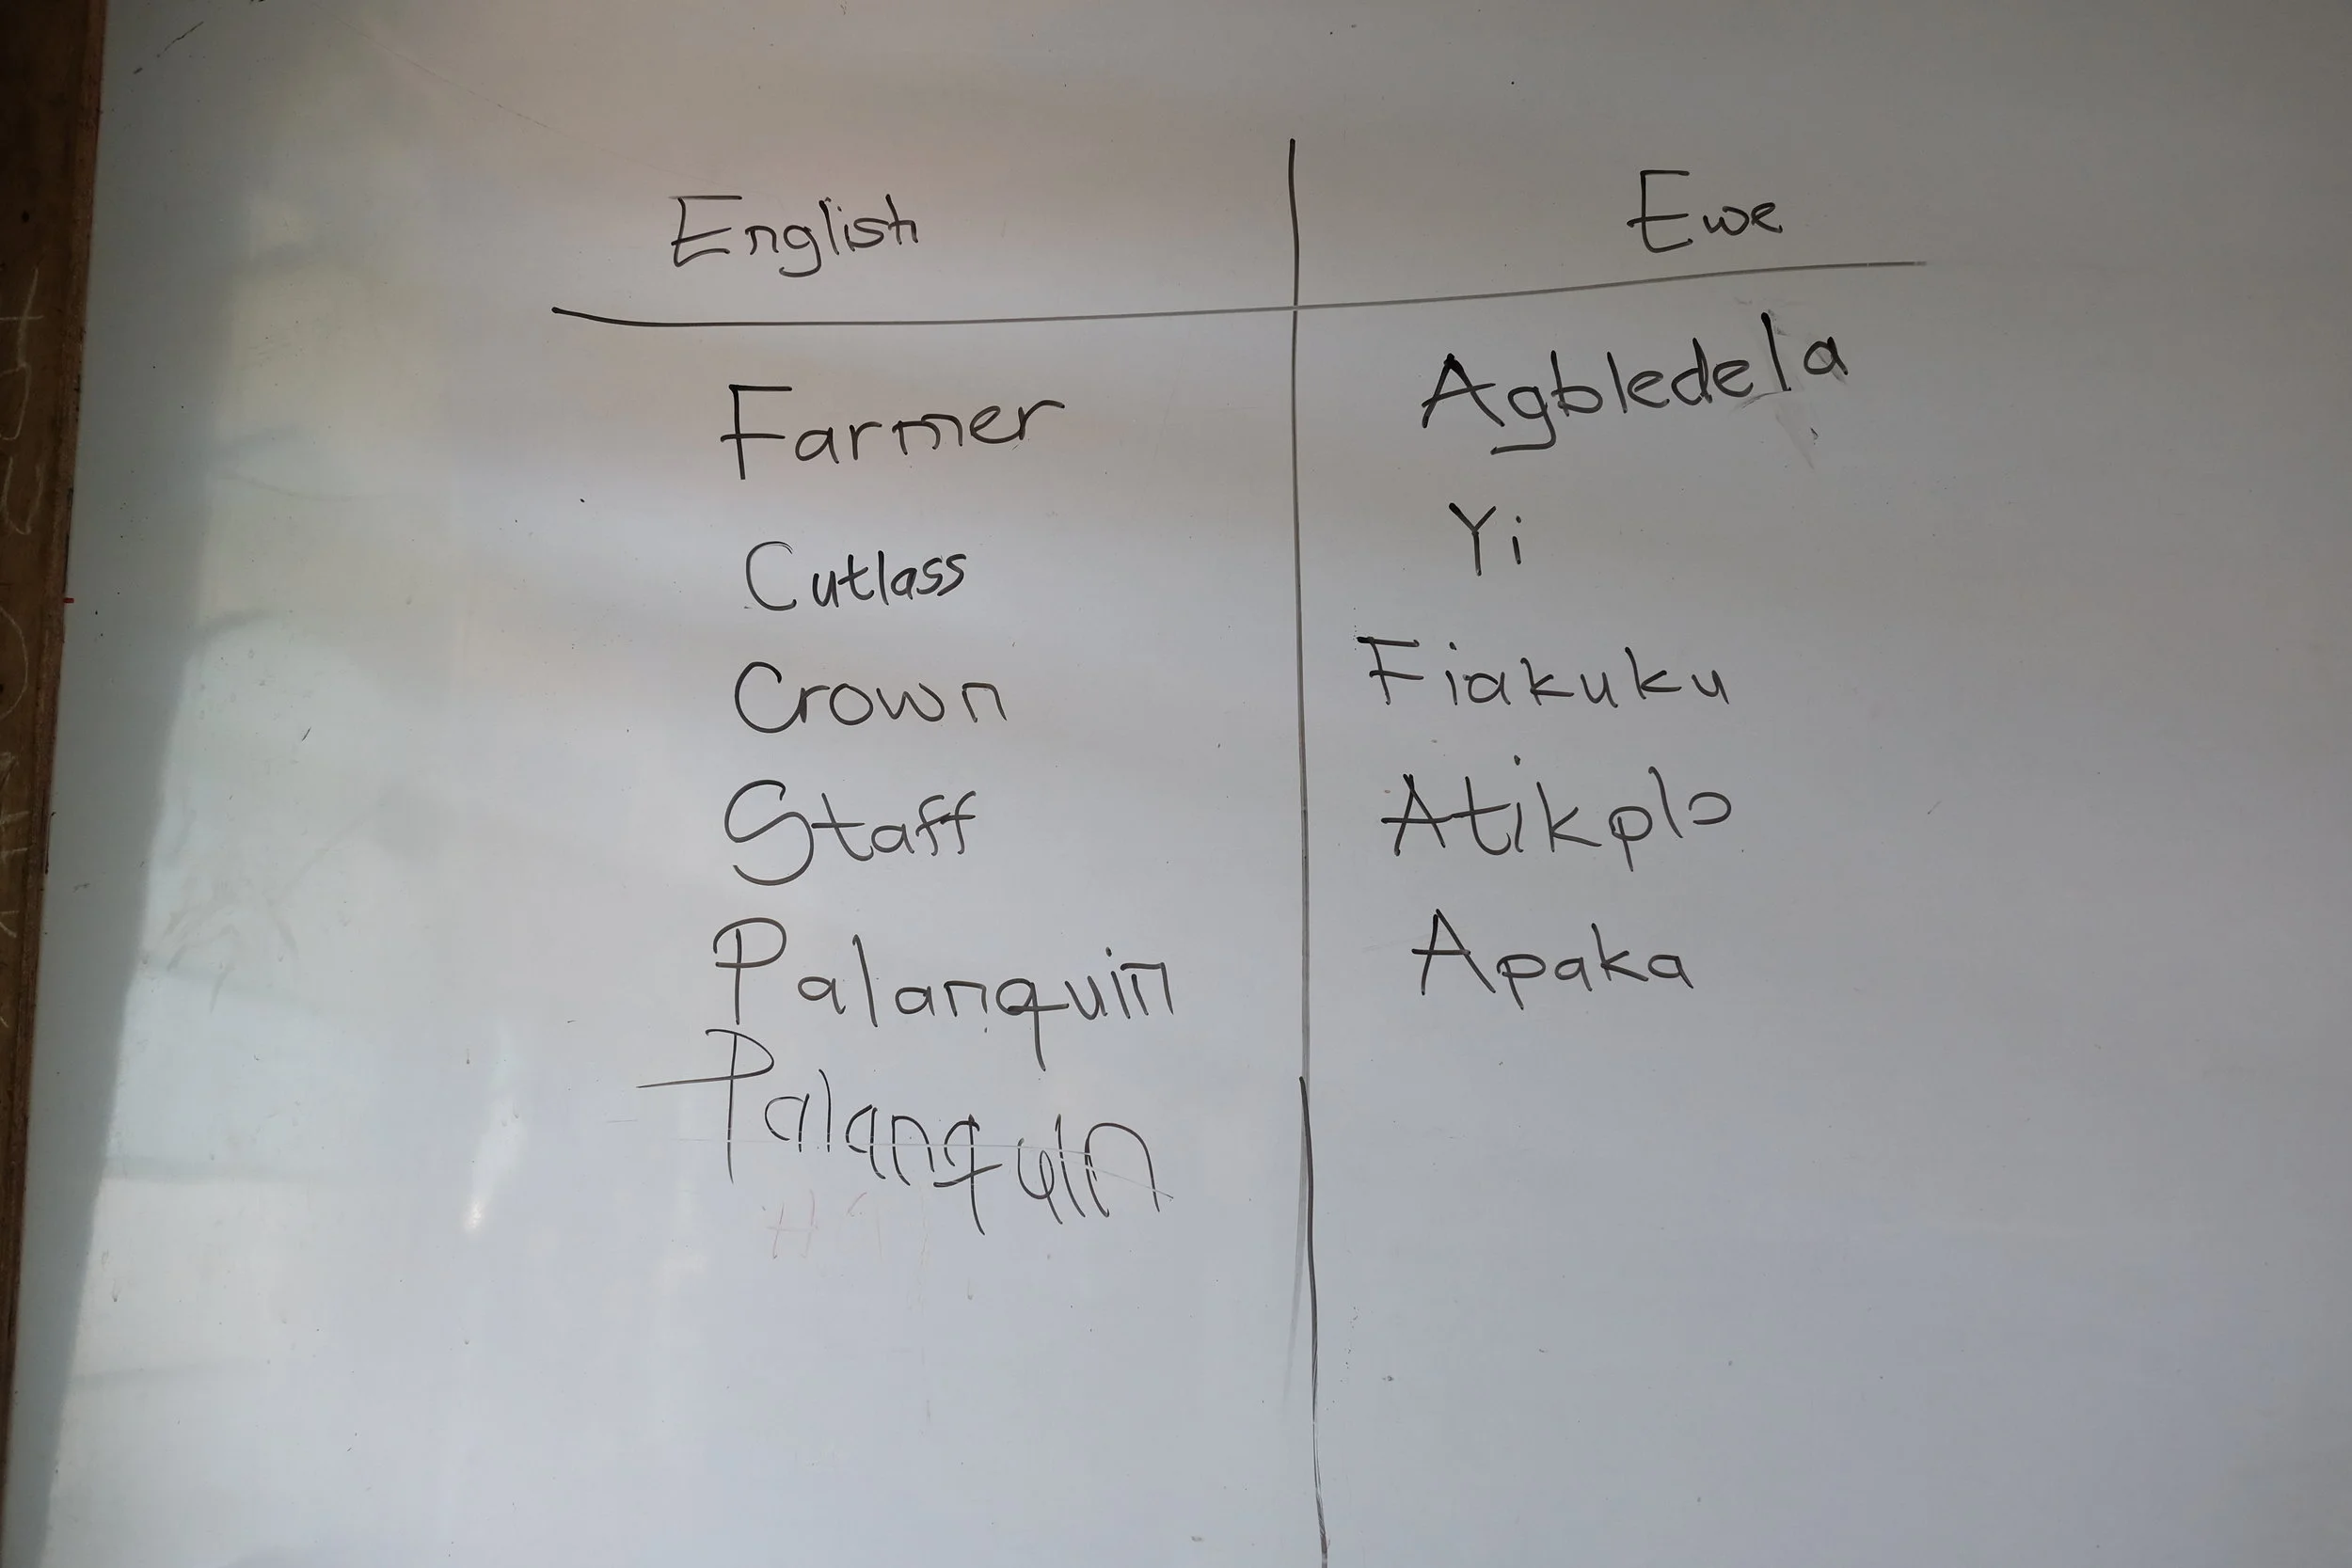 English Ewe
Farmer Agbledela
Cutlass Yi
Crown Fiakuku
Staff Atikplɔ
Palanquin Apaka
Palanquin